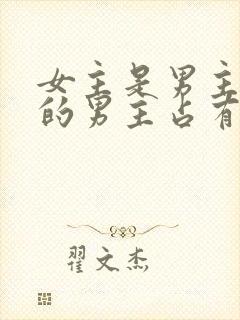 女主是男主
的男主占有
翟文杰